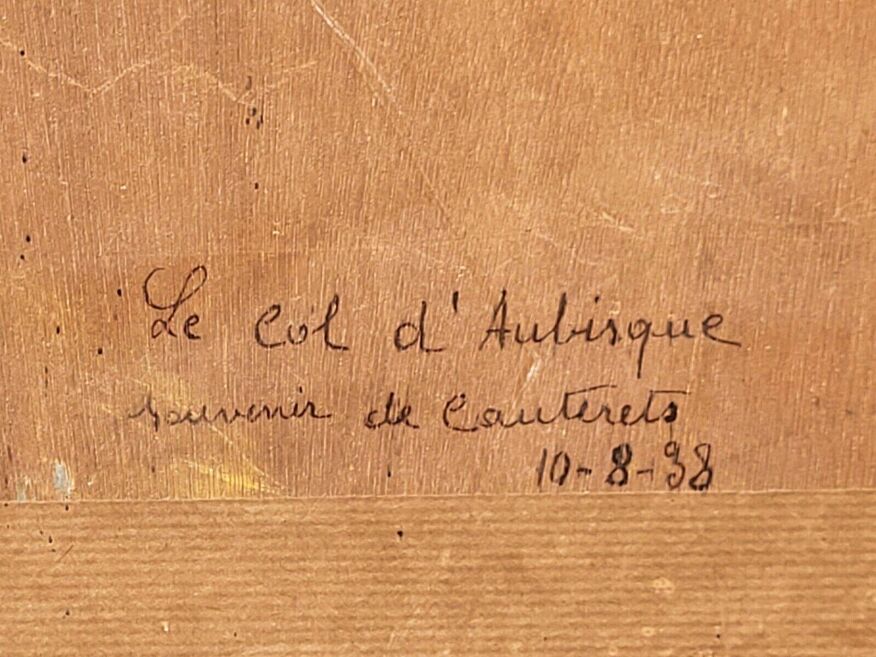 Le Col d'Aubisque
souvenir de Cauterets
10-8-38